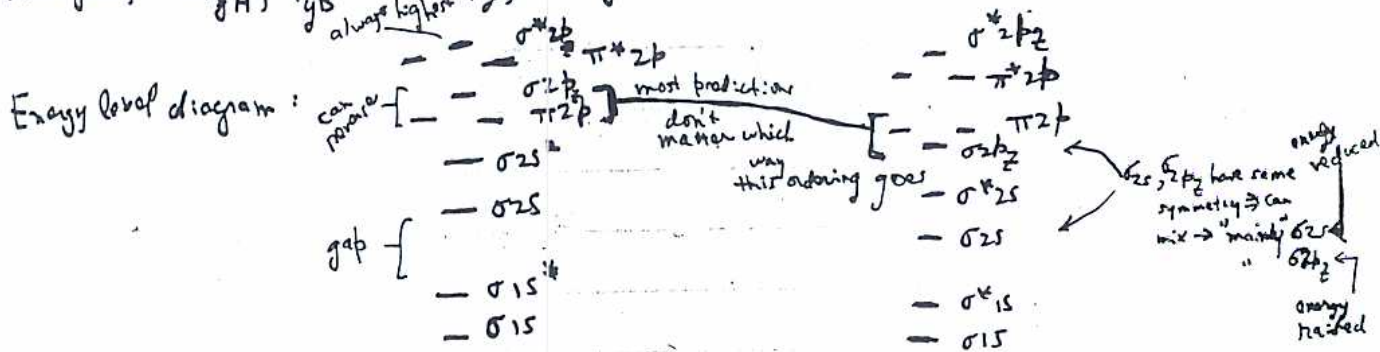 always highest
σ*2p_z
π*2p
Energy level diagram :
can reverse
σ2p_z
π2p
σ2s*
σ2s
gap
σ1s*
σ1s
most predictions
don't
matter which
way
this ordering goes
σ*2p_z
π*2p
π2p
σ2p_z
σ*2s
σ2s
σ*1s
σ1s
σ2s, σ2p_z have same
symmetry ⇒ can
mix → "mainly" σ2s
" σ2p_z
energy
reduced
energy
raised